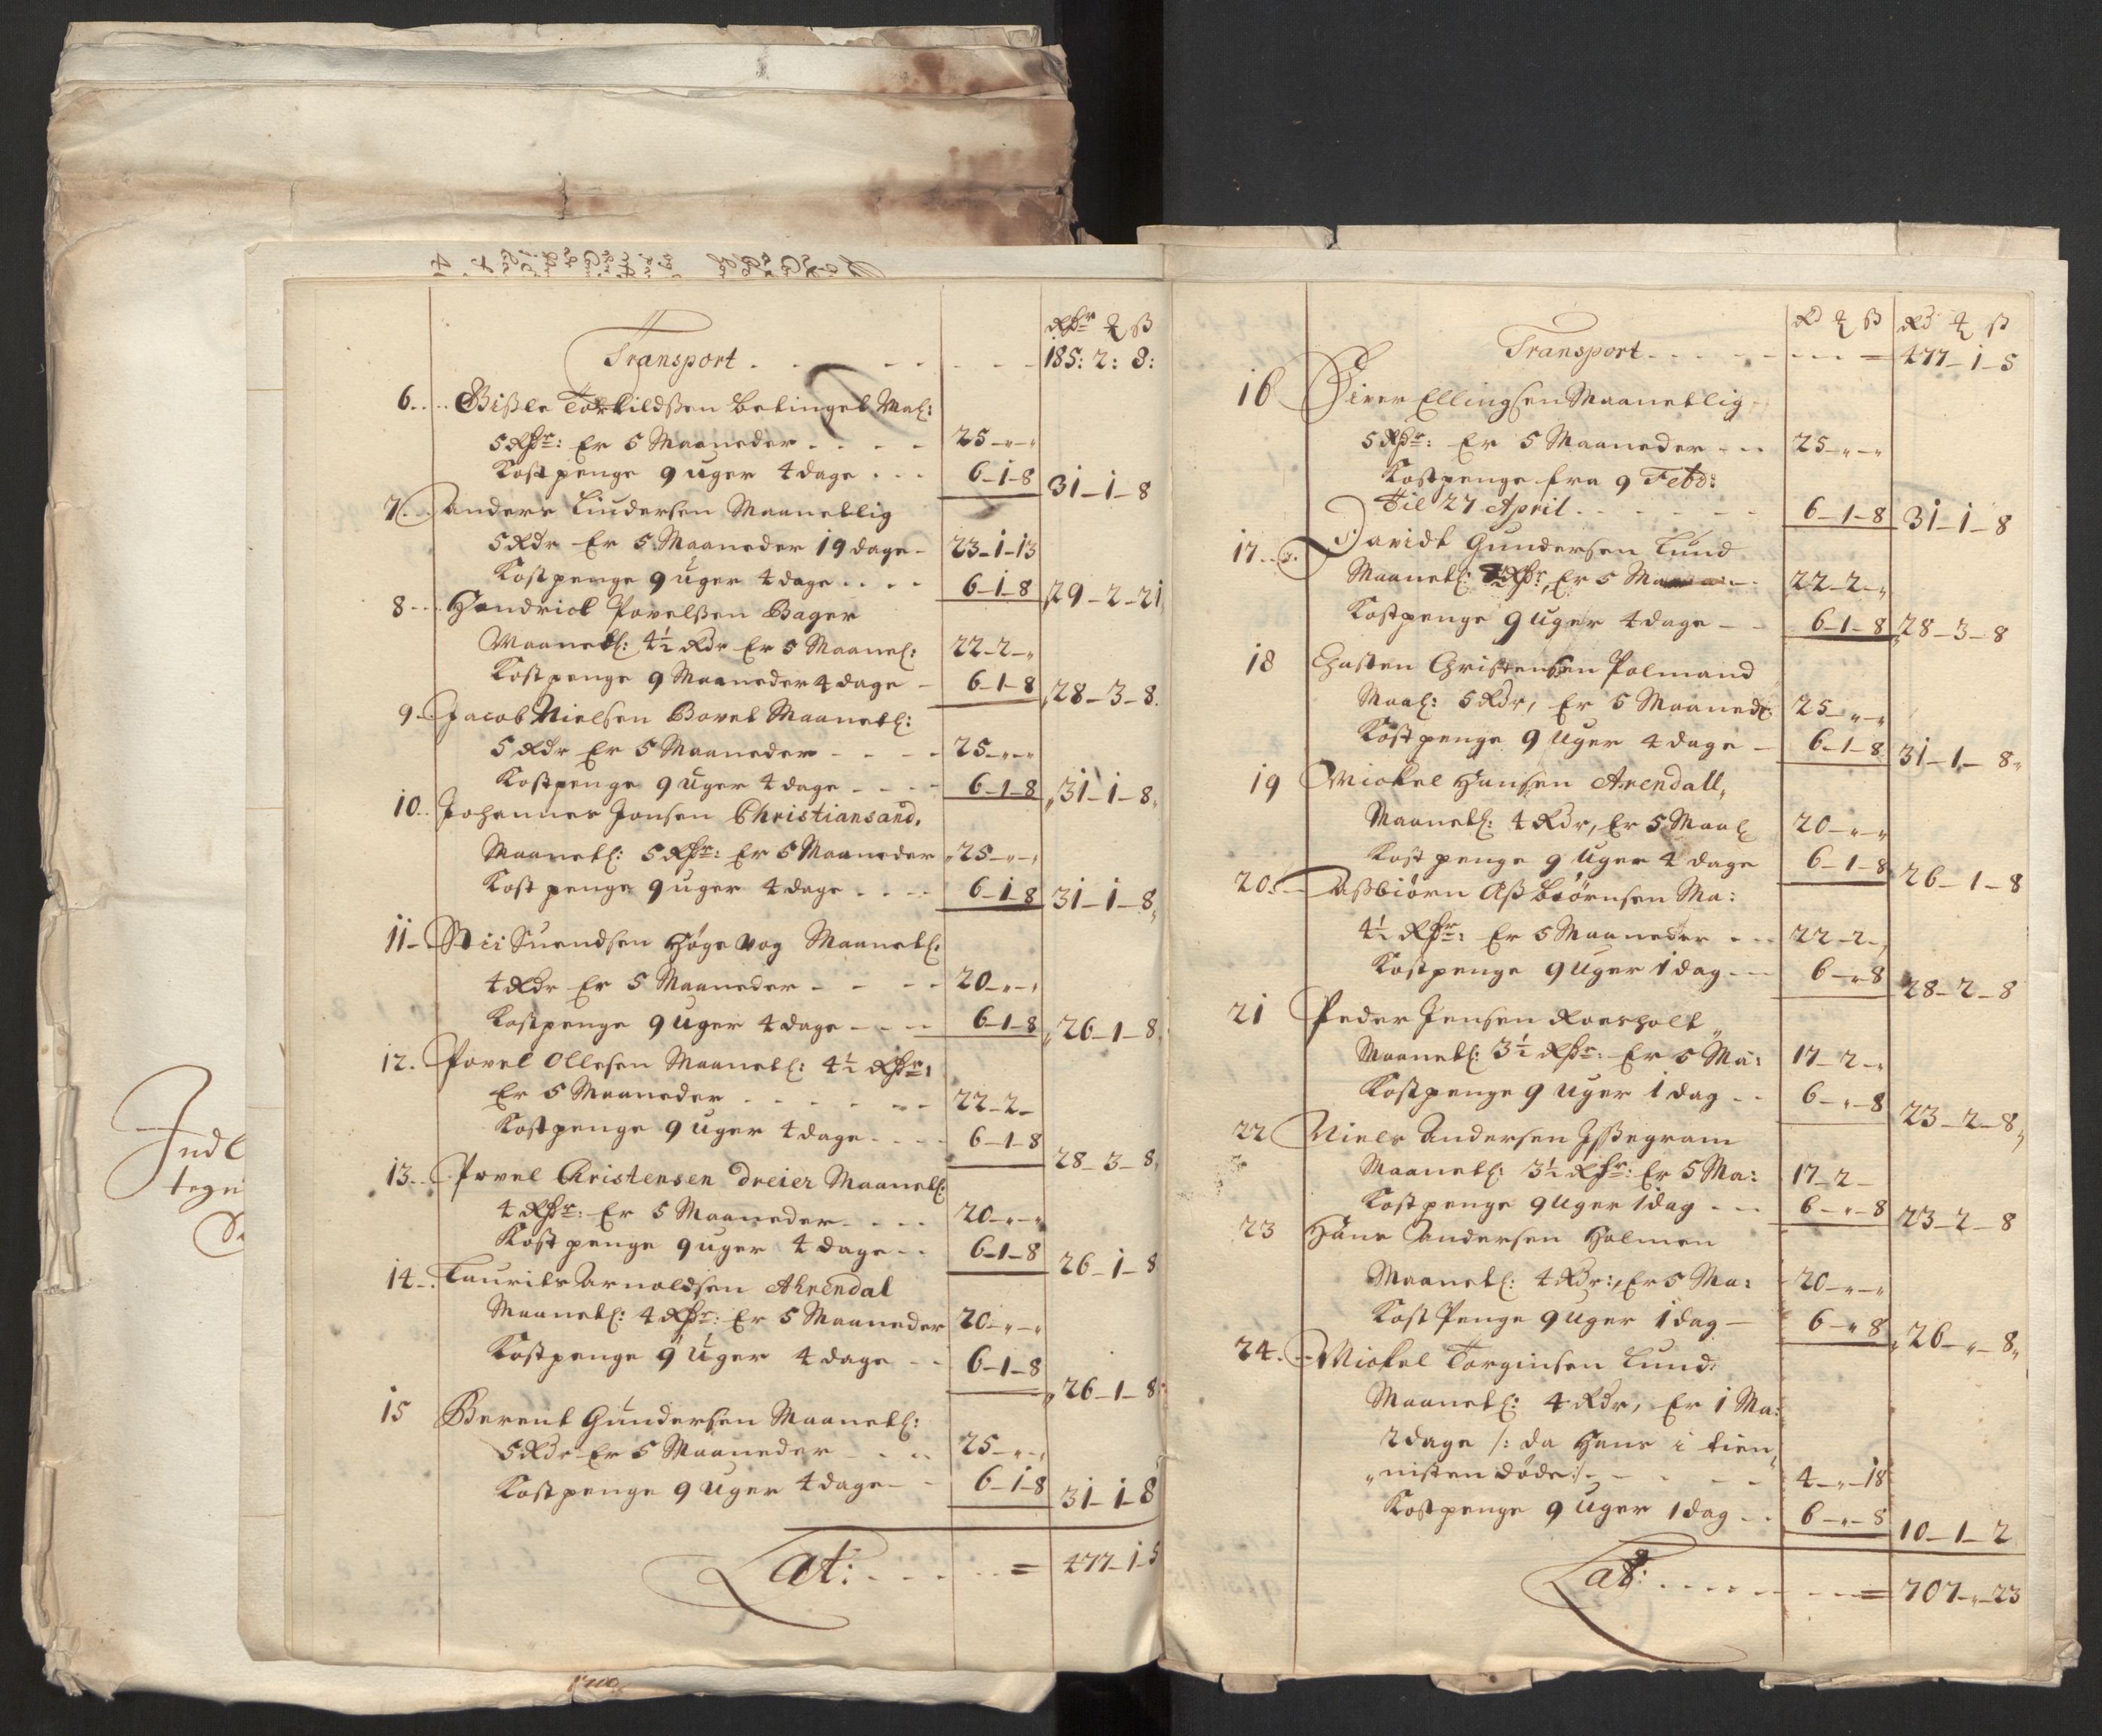 Rdr ꝛ ß
Transport . . . . . . 185: 2: 8:
6. . . Gißle Torkildßen betinget Maa:
5 Rdr: Er 5 Maaneder . . . . 25 - „ - „
Kostpenge 9 uger 4 dage . . . 6-1-8 31-1-8
7. . Anders Lindersen Maanetlig
5 Rdr Er 5 Maaneder 19 dage - 23-1-13
Kostpenge 9 uger 4 dage . . . . 6-1-8 29-2-21
8 - . Hendrick Povelßen Bager
Maanetl: 4½ Rdr Er 5 Maane: 22-2-„
Kostpenge 9 Maaneder 4 dage - 6-1-8 28-3-8.
9. Jacob Nielsen Bovet Maanetl:
5 Rdr Er 5 Maaneder - - - - 25-„-„
Kostpenge 9 uger 4 dage - - - 6-1-8 31-1-8
10. . Johannes Jonsen Christiansand.
Maanetl: 5 Rdr: Er 5 Maaneder 25-„-„
Kost penge 9 uger 4 dage . . . . 6-1-8 31-1-8
11- Suendsen Høge vog Maanetl:
4 Rdr Er 5 Maaneder - - - - 20-„-„
Kostpenge 9 uger 4 dage - - - 6-1-8 26-1-8
12. Povel Ollesen Maanetl: 4½ Rdr:
Er 5 Maaneder - - - - - - 22-2-
Kostpenge 9 uger 4 dage - . . . 6-1-8 28-3-8
13. . Povel Christensen Dreier Maanetl:
4 Rdr: Er 5 Maaneder - . . . 20-„-„
Kost penge 9 uger 4 dage - - 6-1-8 26-1-8
14- . Laurits Arnoldsen Ahrendal
Maanetl: 4 Rdr: Er 5 Maaneder 20-„-„
Kostpenge 9 uger 4 dage - - 6-1-8 26-1-8
15 Berent Gundersen Maanetl:
5 Rdr Er 5 Maaneder - . . 25-„-„
Kostpenge 9 uger 4 dage - - 6-1-8 31-1-8
Lat: . . . . . . = 477-1-5
Rd ꝛ ß Rd ꝛ ß
Transport - - - - - - - = 477-1-5
16 Siver Ellingsen Maanetlig -
5 Rdr: Er 5 Maaneder - . . 25-„-„
Kostpenge fra 9 Febr:
til 27 April . . . . . . 6-1-8 31-1-8
17. . Davidt Gundersen Lund
Maanetl: Rdr, Er 5 22-2-„
Kostpenge 9 uger 4 dage - - 6-1-8 28-3-8
18 Christensen Polmand
Maal: 5 Rdr, Er 5 Maaned: 25-„-„
Kost penge 9 uger 4 dage - 6-1-8 31-1-8
19 Mickel Hansen Arendall,
Maanetl: 4 Rdr, Er 5 Maa 20-„-„
Kost penge 9 uger 4 dage 6-1-8 26-1-8
20. Aßbiørn Aßbiørnsen Ma:
4½ Rdr: Er 5 Maaneder - . . 22-2-„
Kostpenge 9 uger 1 dag - - 6-„-8 28-2-8
21 Peder Jensen Roesholt „
Maanetl: 3½ Rdr: Er 5 Ma: 17-2-„
Kostpenge 9 uger 1 dag - - 6-„-8 23-2-8
22 Niels Andersen
Maanetl: 3½ Rdr: Er 5 Ma: 17-2-
Kost penge 9 uger 1 dag - - 6-„-8 23-2-8
23 Hans Andersen Holmen
Maanetl: 4 Rdr:, Er 5 Ma: 20-„-„
Kost Penge 9 uger 1 dag - 6-„-8 26-„-8
24. - Mickel Torginsen Lund:
Maanetl: 4 Rdr, Er 1 Ma:
2 dage /: da Hans i tien„
„nisten døde :/ - - - - - 4-„-18
Kostpenge 9 uger 1 dag - . 6-„-8 10-1-2
Lat: . . . . . . = 707-„-23
Indl
tege
1700